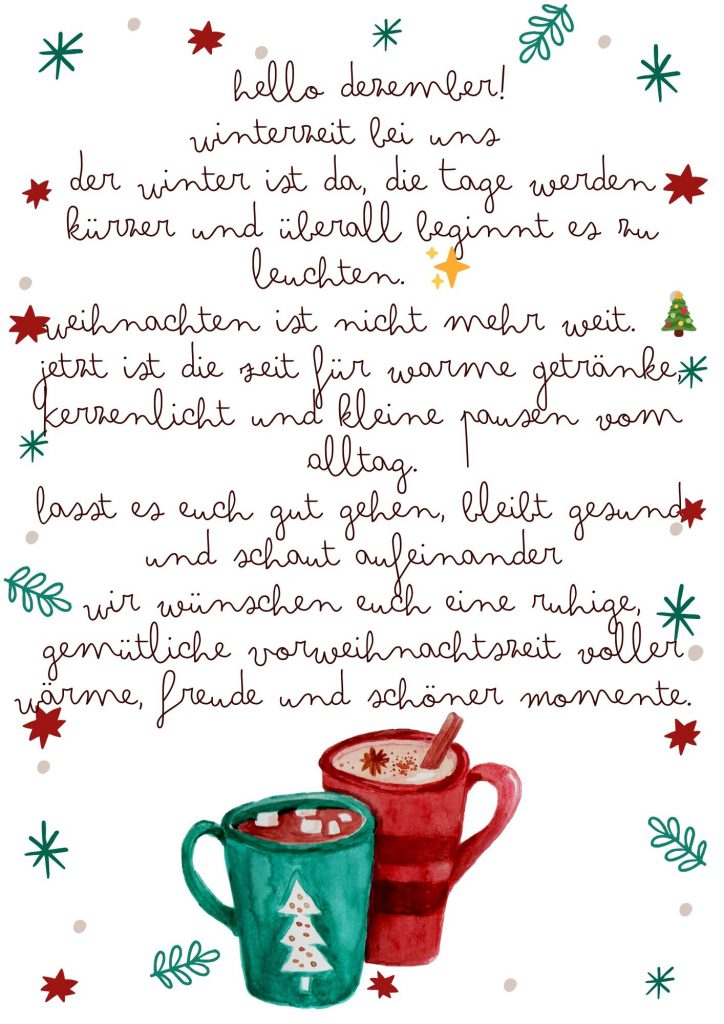 hello dezember!
winterzeit bei uns
der winter ist da, die tage werden
kürzer und überall beginnt es zu
leuchten. ✨
weihnachten ist nicht mehr weit. 🎄
jetzt ist die zeit für warme getränke,
kerzenlicht und kleine pausen vom
alltag.
lasst es euch gut gehen, bleibt gesund
und schaut aufeinander
wir wünschen euch eine ruhige,
gemütliche vorweihnachtszeit voller
wärme, freude und schöner momente.